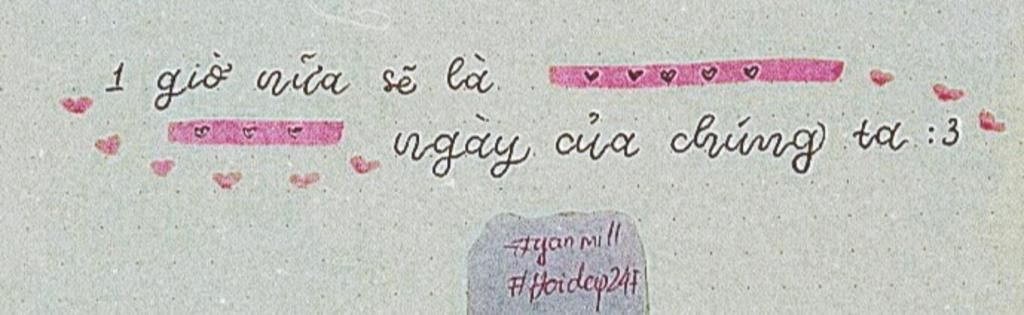 1 giờ nữa sẽ là
ngày của chúng ta :3
#yanmill
#Hoidap247